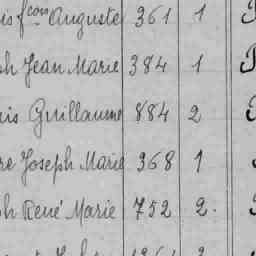 is fcois Auguste 361 1
ph Jean Marie 384 1
uis Guillaume 884 2
re Joseph Marie 368 1
ph René Marie 752 2.